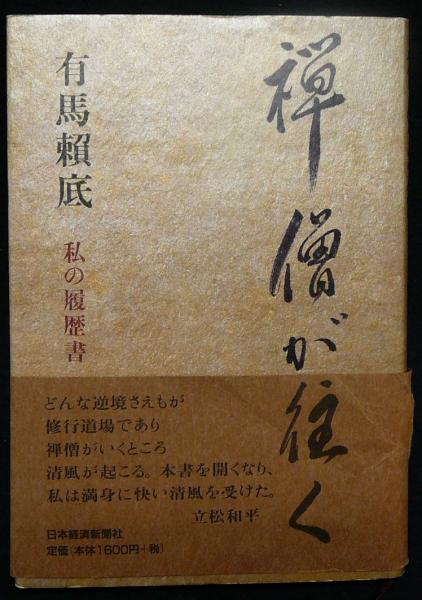 禅僧が往く
有馬賴底
私の履歴書
どんな逆境さえもが
修行道場であり
禅僧がいくところ
清風が起こる。本書を開くなり、
私は満身に快い清風を受けた。
立松和平
日本経済新聞社
定価(本体1600円+税)